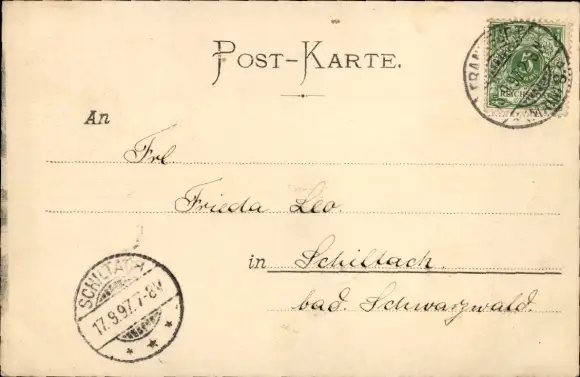 POST-KARTE.
5
An
Frl
Frieda Leo.
in Schiltach.
bad. Schwarzwald.
SCHILTACH
17.9.97.7-8V